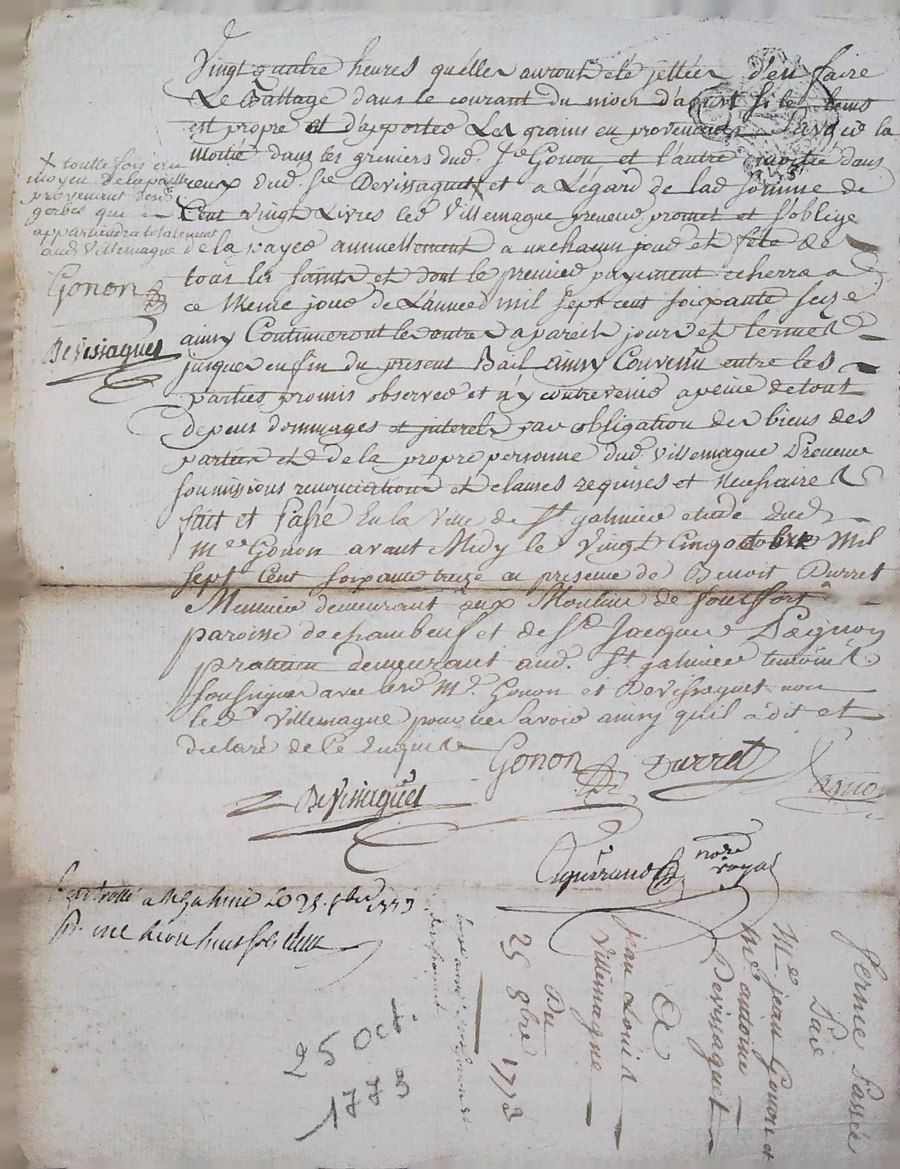 Vingt quatre heures quelles auront été jettées d'en faire
Le Battage dans le courant du mois d'aoust si le tems
est propre et d'apporter Les grains en provenant la
Moitié dans les greniers dud. Sr Gonon et l'autre moitié dans
ceux dud. Sr Devissaguet et a Légard de lad. somme de
Cent vingt Livres led. Villemagne preneur promet et s'oblige
de la payer annuellement a un chacun jour et fête de
tous les saints et dont le premier payement echerra a
ce même jour de Lannée mil sept cent soixante seize
ainsy Continueront les autres a pareils jours et termes
jusques en fin du present Bail ainsy Convenu entre les
parties promis observer et n'y contrevenir a peine de tout
depens dommages et interets par obligation des biens des
parties et de la propre personne dud. Villemagne Preneur
soumissions renonciations et clauses requises et necessaires
fait et Passé En la Ville de St galmier etude dud.
Me Gonon avant Midy le Vingt Cinq octobre Mil
sept Cent soixante treize en presence de Benoit Durret
Meunier demeurant aux Moulins de fontfort
paroisse de chambeuf et de Sr Jacques Pagnon
praticien demeurant aud. St galmier temoins
soussignés avec lesd. Mrs Gonon et Devissaguet non
led. Villemagne pour ne savoir ainsy qu'il a dit et
declaré de ce Enquis
x toutte fois au
moyen de la paille
provenant desd.
gerbes qui
appartiendra totalement
aud. Villemagne
Gonon
Devissaguet
Gonon Durret Pagnon
Devissaguet
nore royal
Controllé a St galmier Le 25. 8bre 1773
Ferme Passée
Par
Me jean Gonon et
Mr antoine
Devissaguet
A
jean Louis
Villemagne
Du
25 8bre 1773
25 oct.
1773